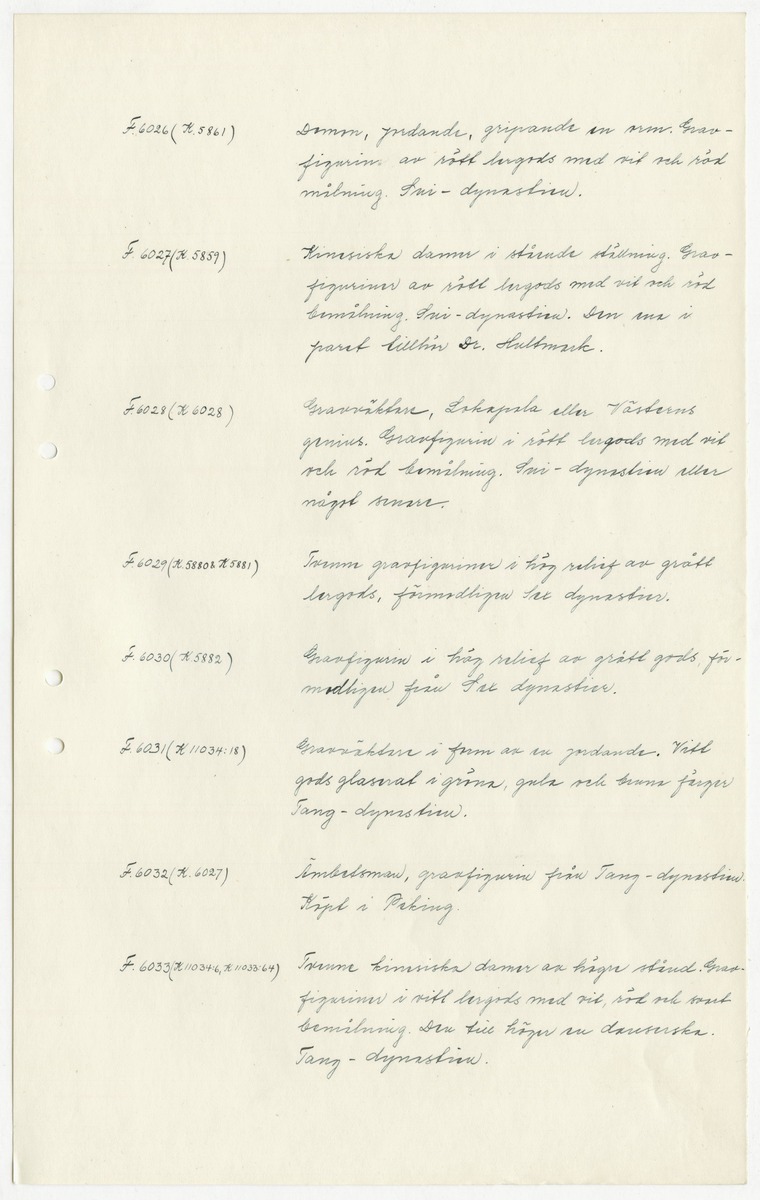 F. 6026 (K. 5861) Demon, jordande, gripande en orm. Grav-
figurin av rött lergods med vit och röd
målning. Sui-dynastien.
F. 6027 (K. 5859) Kinesiska damer i stående ställning. Grav-
figuriner av rött lergods med vit och röd
bemålning. Sui-dynastien. Den ena i
paret tillhör Dr. Hultmark.
F. 6028 (K 6028) Gravväktare, Lokapala eller Västerns
genius. Gravfigurin i rött lergods med vit
och röd bemålning. Sui-dynastien eller
något senare.
F. 6029 (K. 5880 & K 5881) Tvenne gravfiguriner i hög relief av grått
lergods, förmodligen Sex dynastier.
F. 6030 (K. 5882) Gravfigurin i hög relief av grått gods, för-
modligen från Sex dynastier.
F. 6031 (K 11034:18) Gravväktare i form av en jordande. Vitt
gods glaserat i gröna, gula och bruna färger
Tang-dynastien.
F. 6032 (K. 6027) Ämbetsman, gravfigurin från Tang-dynastien.
Köpt i Peking.
F. 6033 (K 11034:6, K 11033:64) Tvenne kinesiska damer av högre stånd. Grav-
figuriner i vitt lergods med vit, röd och svart
bemålning. Den till höger en danserska.
Tang-dynastien.